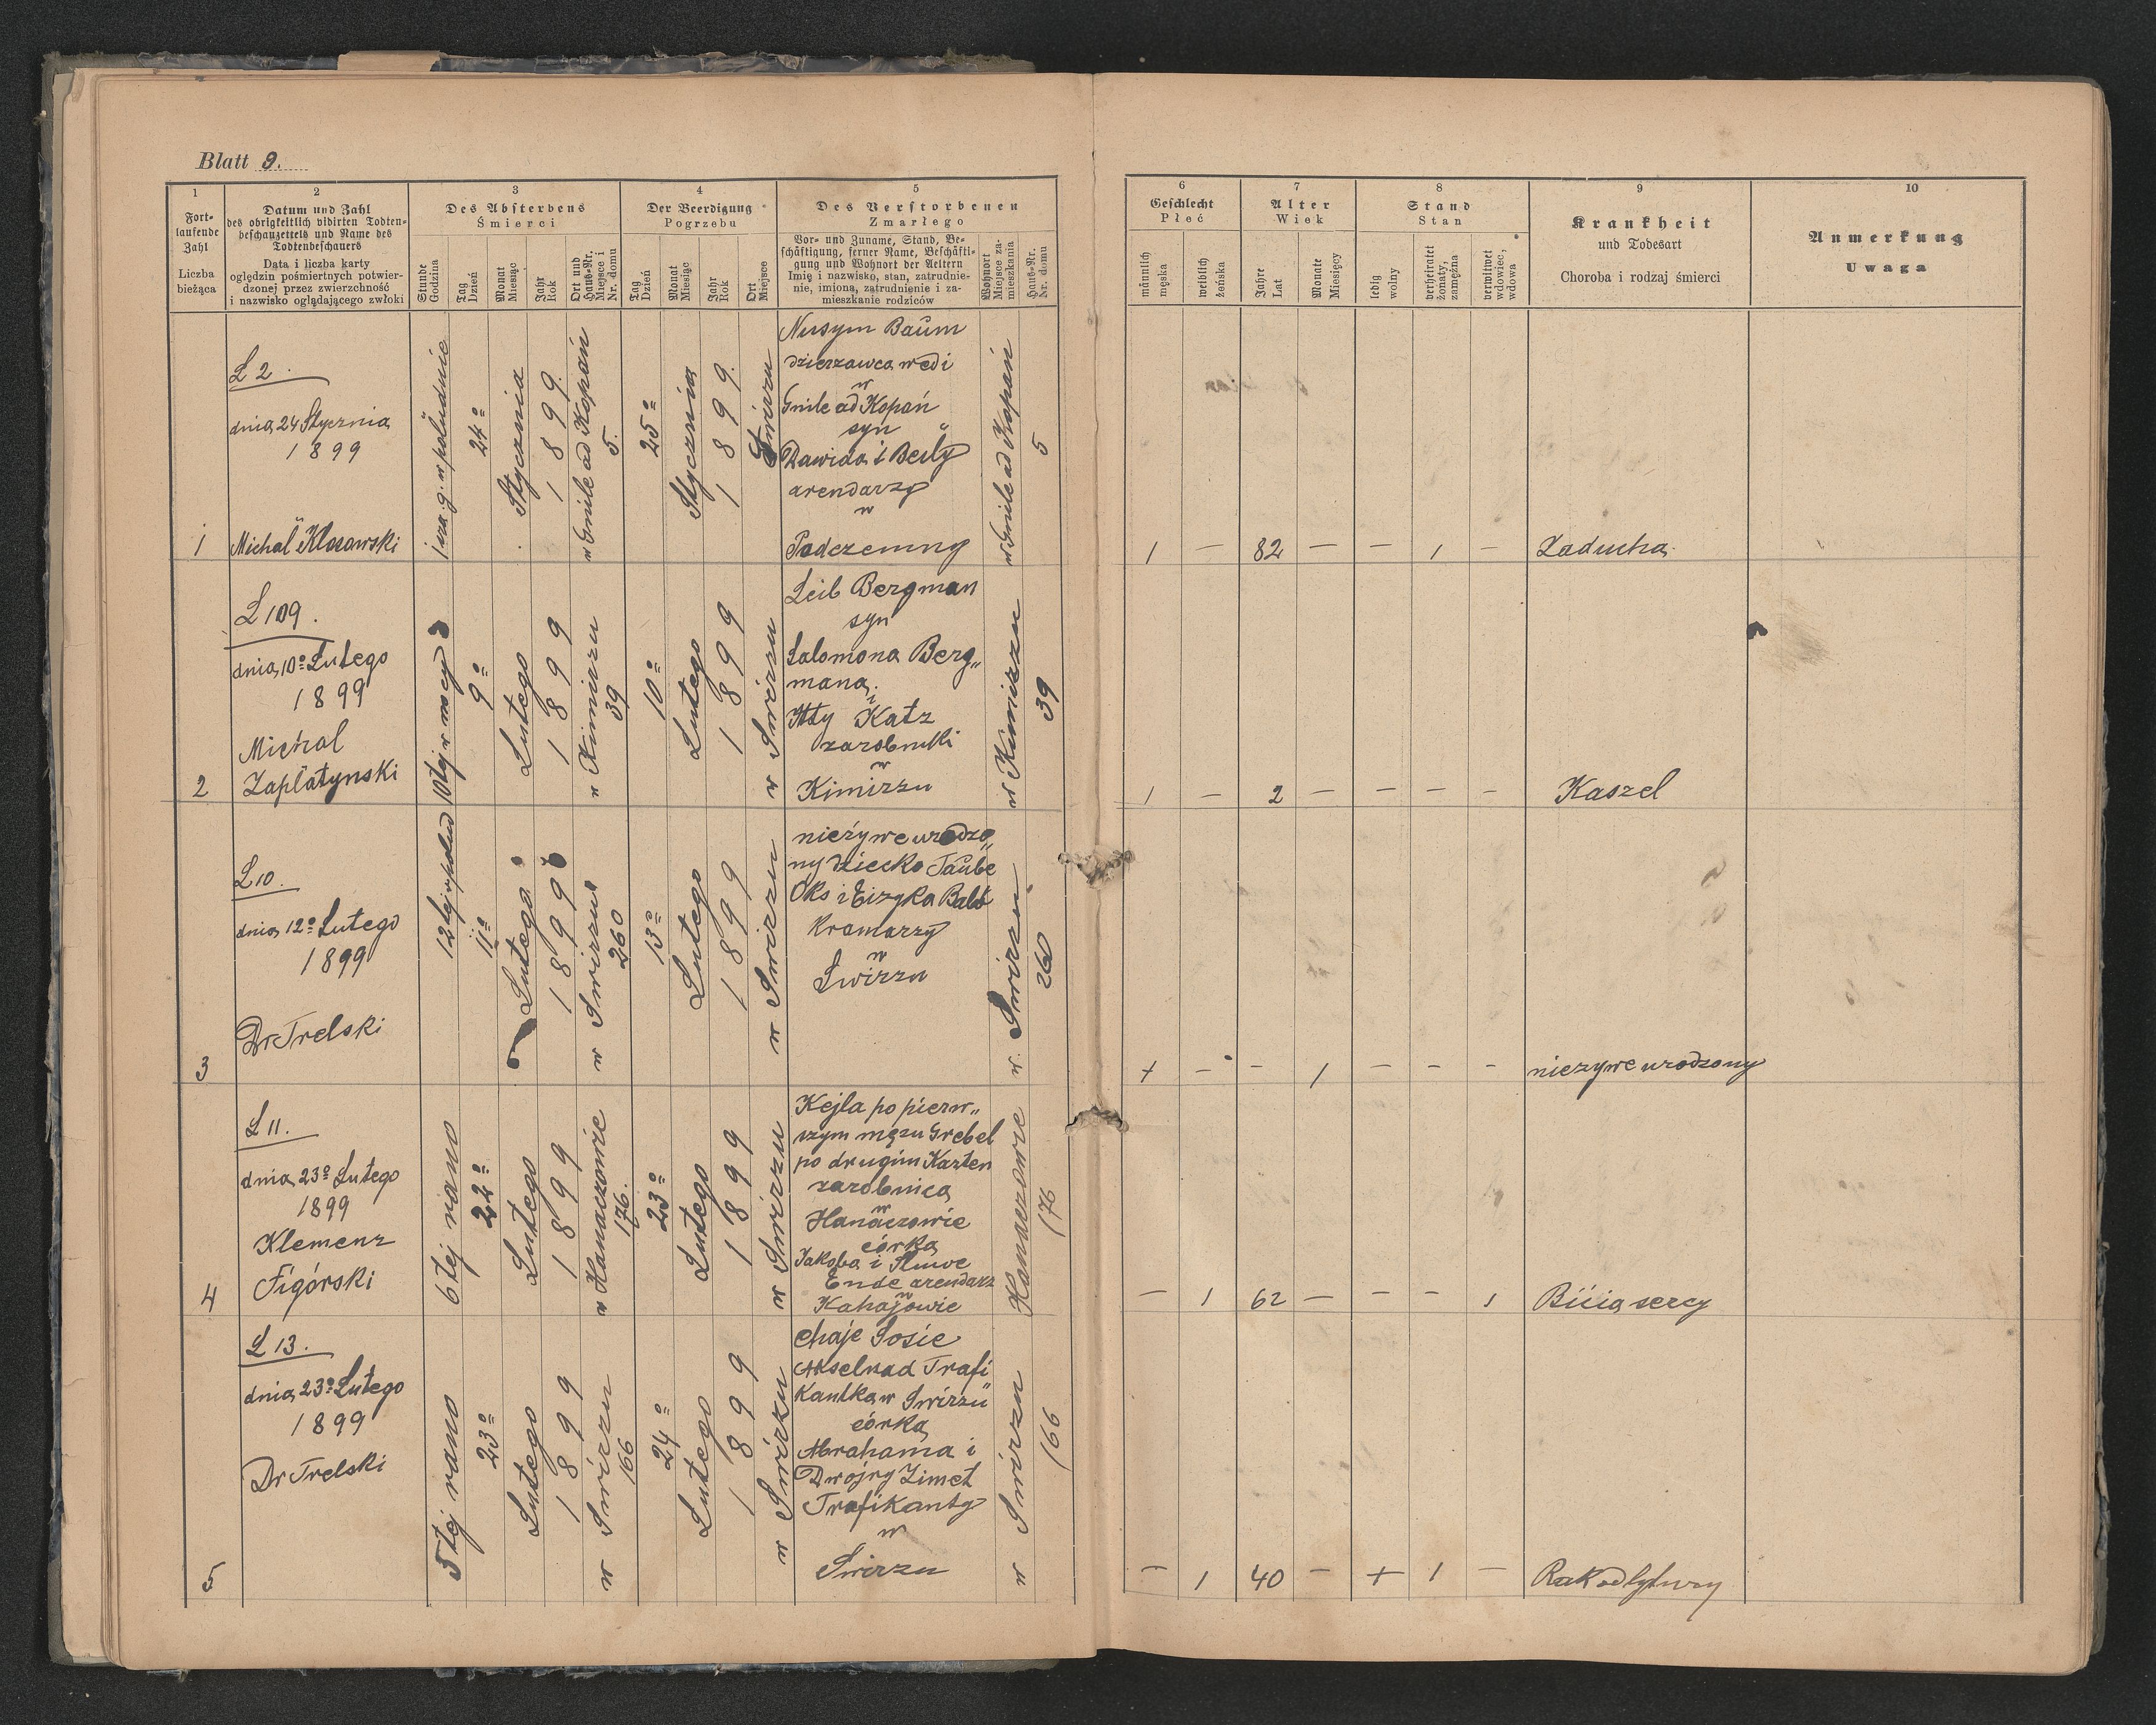 Blatt 9.
1
Fort-
laufende
Zahl
Liczba
bieżąca
2
Datum und Zahl
des obrigkeitlich vidirten Todten-
beschauzettels und Name des
Todtenbeschauers
Data i liczba karty
oględzin pośmiertnych potwier-
dzonej przez zwierzchność
i nazwisko oglądającego zwłoki
3
Des Absterbens
Śmierci
Stunde
Godzina
Tag
Dzień
Monat
Miesiąc
Jahr
Rok
Ort und
Haus-Nr.
Miejsce i
Nr. domu
4
Der Beerdigung
Pogrzebu
Tag
Dzień
Monat
Miesiąc
Jahr
Rok
Ort
Miejsce
5
Des Verstorbenen
Zmarłego
Vor- und Zuname, Stand, Be-
schäftigung, ferner Name, Beschäfti-
gung und Wohnort der Aeltern
Imię i nazwisko, stan, zatrudnie-
nie, imiona, zatrudnienie i za-
mieszkanie rodziców
Wohnort
Miejsce za-
mieszkania
Haus-Nr.
Nr. domu
6
Geschlecht
Płeć
männlich
męska
weiblich
żeńska
7
Alter
Wiek
Jahre
Lat
Monate
Miesięcy
8
Stand
Stan
ledig
wolny
verheiratet
żonaty,
zamężna
verwitwet
wdowiec,
wdowa
9
Krankheit
und Todesart
Choroba i rodzaj śmierci
10
Anmerkung
Uwaga
1
L 2.
dnia 24 Stycznia
1899
Michal Klosowski
w południe
24º
Stycznia
1899.
w Gnile ad Kopań
5.
25º
Stycznia
1899.
Swirzu
Nusym Baum
dzierzawca wedi
w
Gnile ad Kopań
syn
Dawida i Beily
arendarzy
w
w Gnile ad Kopań
5
1 — 82 — — 1 —
Zaducha
2
L 109.
dnia 10º Lutego
1899
Michal
Zaplatynski
10tej w nocy
9º
Lutego
1899
w Kimirzu
39
10º
Lutego
1899
w Swirzu
Leib Bergman
syn
Salomona Berg„
mana
i
Itty Katz
zarobniki
w
Kimirzu
w Kimirzu
39
1 — 2 — — — —
Kaszel
3
L 10.
dnia 12º Lutego
1899
Dr Trelski
12tej w połud
11º
Lutego
1899
w Swirzu
260
13º
Lutego
1899
w Swirzu
nieżywe urodzo„
ny dziecko Taube
Oks i Eizyka
Kramarzy
w
Swirzu
w Swirzu
260
+ — — 1 — — —
niezywe urodzony
4
L 11.
dnia 23º Lutego
1899
Klemenz
Figórski
6tej rano
22º
Lutego
1899
w Hanaczowie
176.
23º
Lutego
1899
w Swirzu
Kejla po pierw„
szym mązu Grebel
po drugim Karten
zarobnica
w
Hanaczowie
córka
Jakoba i
Ende arendarz
w
Kahajowie
Hanaczowie
176
— 1 62 — — — 1
Bicia sercy
5
L 13.
dnia 23º Lutego
1899
Dr Trelski
5tej rano
23º
Lutego
1899
w Swirzu
166
24º
Lutego
1899
w Swirzu
Chaje Sosie
Akselrad Trafi
Kantka w Swirzu
córka
Abrahama i
Dwojry Zimet
Trafikanty
w
Swirzu
w Swirzu
166
— 1 40 — + 1 —